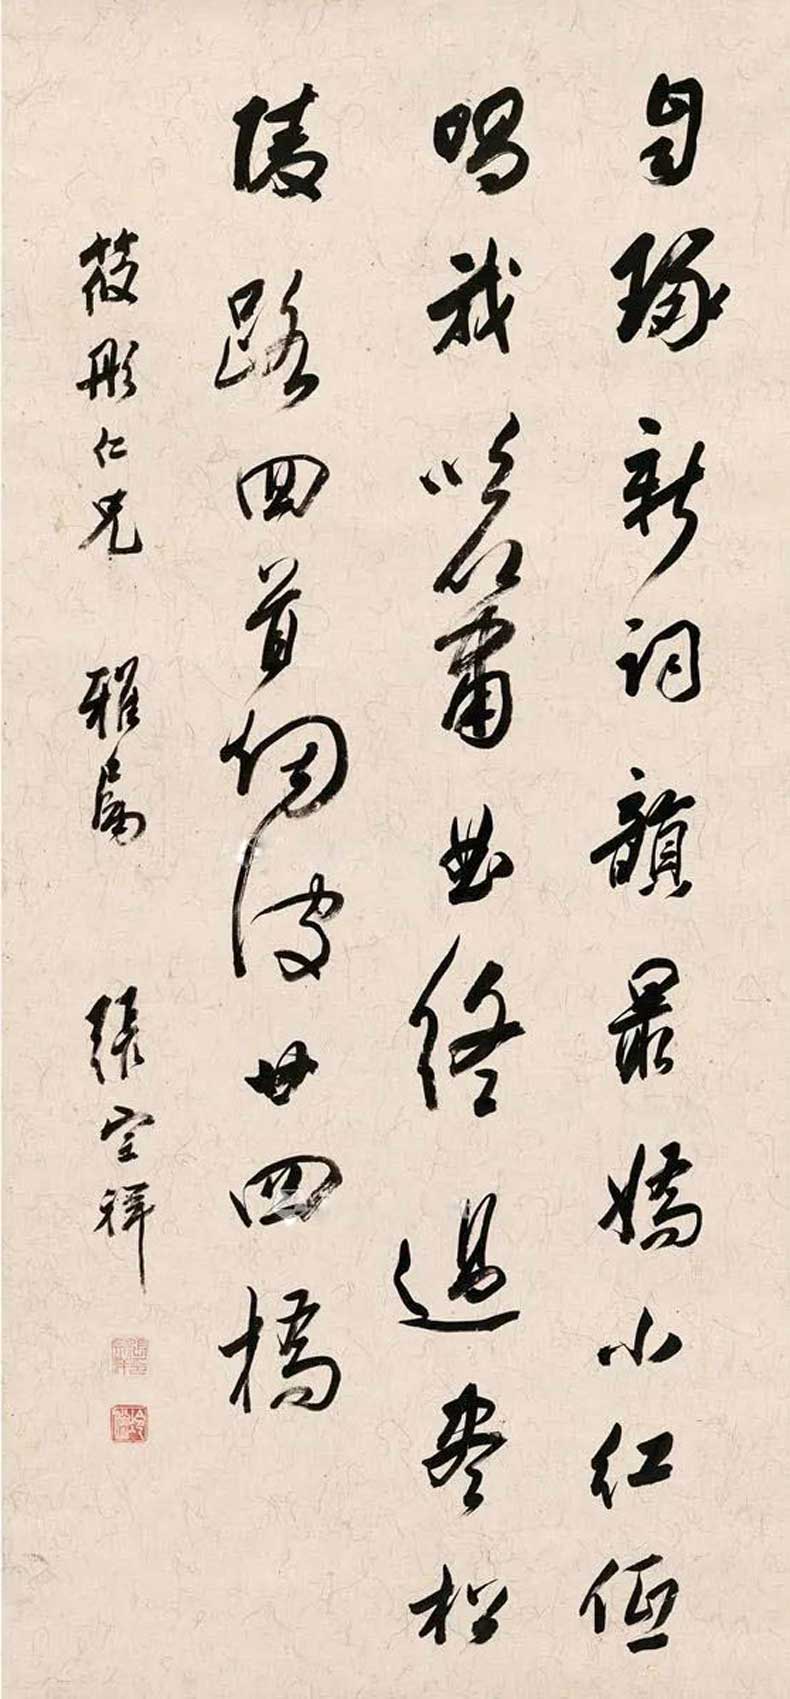 自琢新詞韻最嬌小紅低
唱我吹簫曲終過盡松
陵路回首烟波廿四橋
筱彤仁兄 雅屬 張宗祥